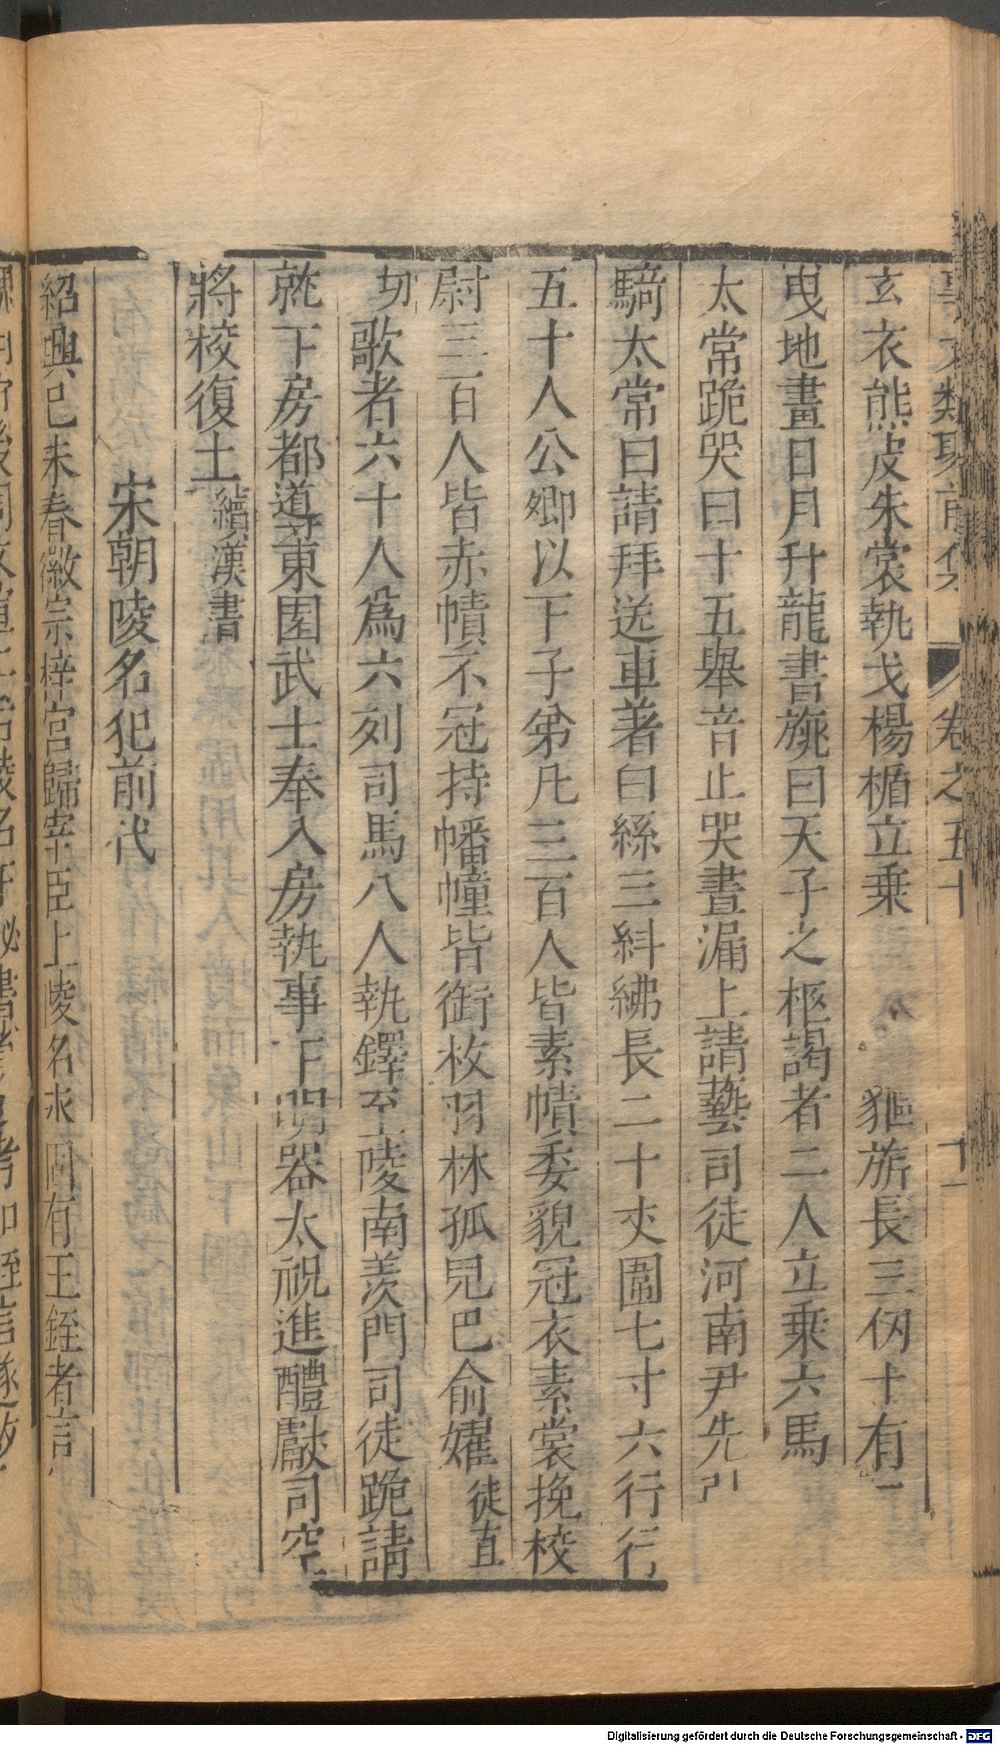 事文類聚前集 卷之五十 十一
玄衣熊皮朱裳執戈楊楯立乗 旂長三仞十有
曳地畫日月升龍書旐曰天子之柩謁者二人立乗六馬
太常跪哭曰十五舉音止哭晝漏上請藝司徒河南尹先引
騎太常曰請拜送車著白絲三糾紼長二十丈圍七寸六行行
五十人公卿以下子弟凡三百人皆素幘委貌冠衣素裳挽校
尉三百人皆赤幘不冠持幡幢皆銜枚羽林孤兒巴俞嬥 徒直
切歌者六十人爲六列司馬八人執鐸至陵南羨門司徒跪請
就下房都導東園武士奉入房執事下明器太祝進醴獻司空
將校復土 續漢書
宋朝陵名犯前代
紹興己未春徽宗梓宮歸宰臣上陵名永固有王銍者言